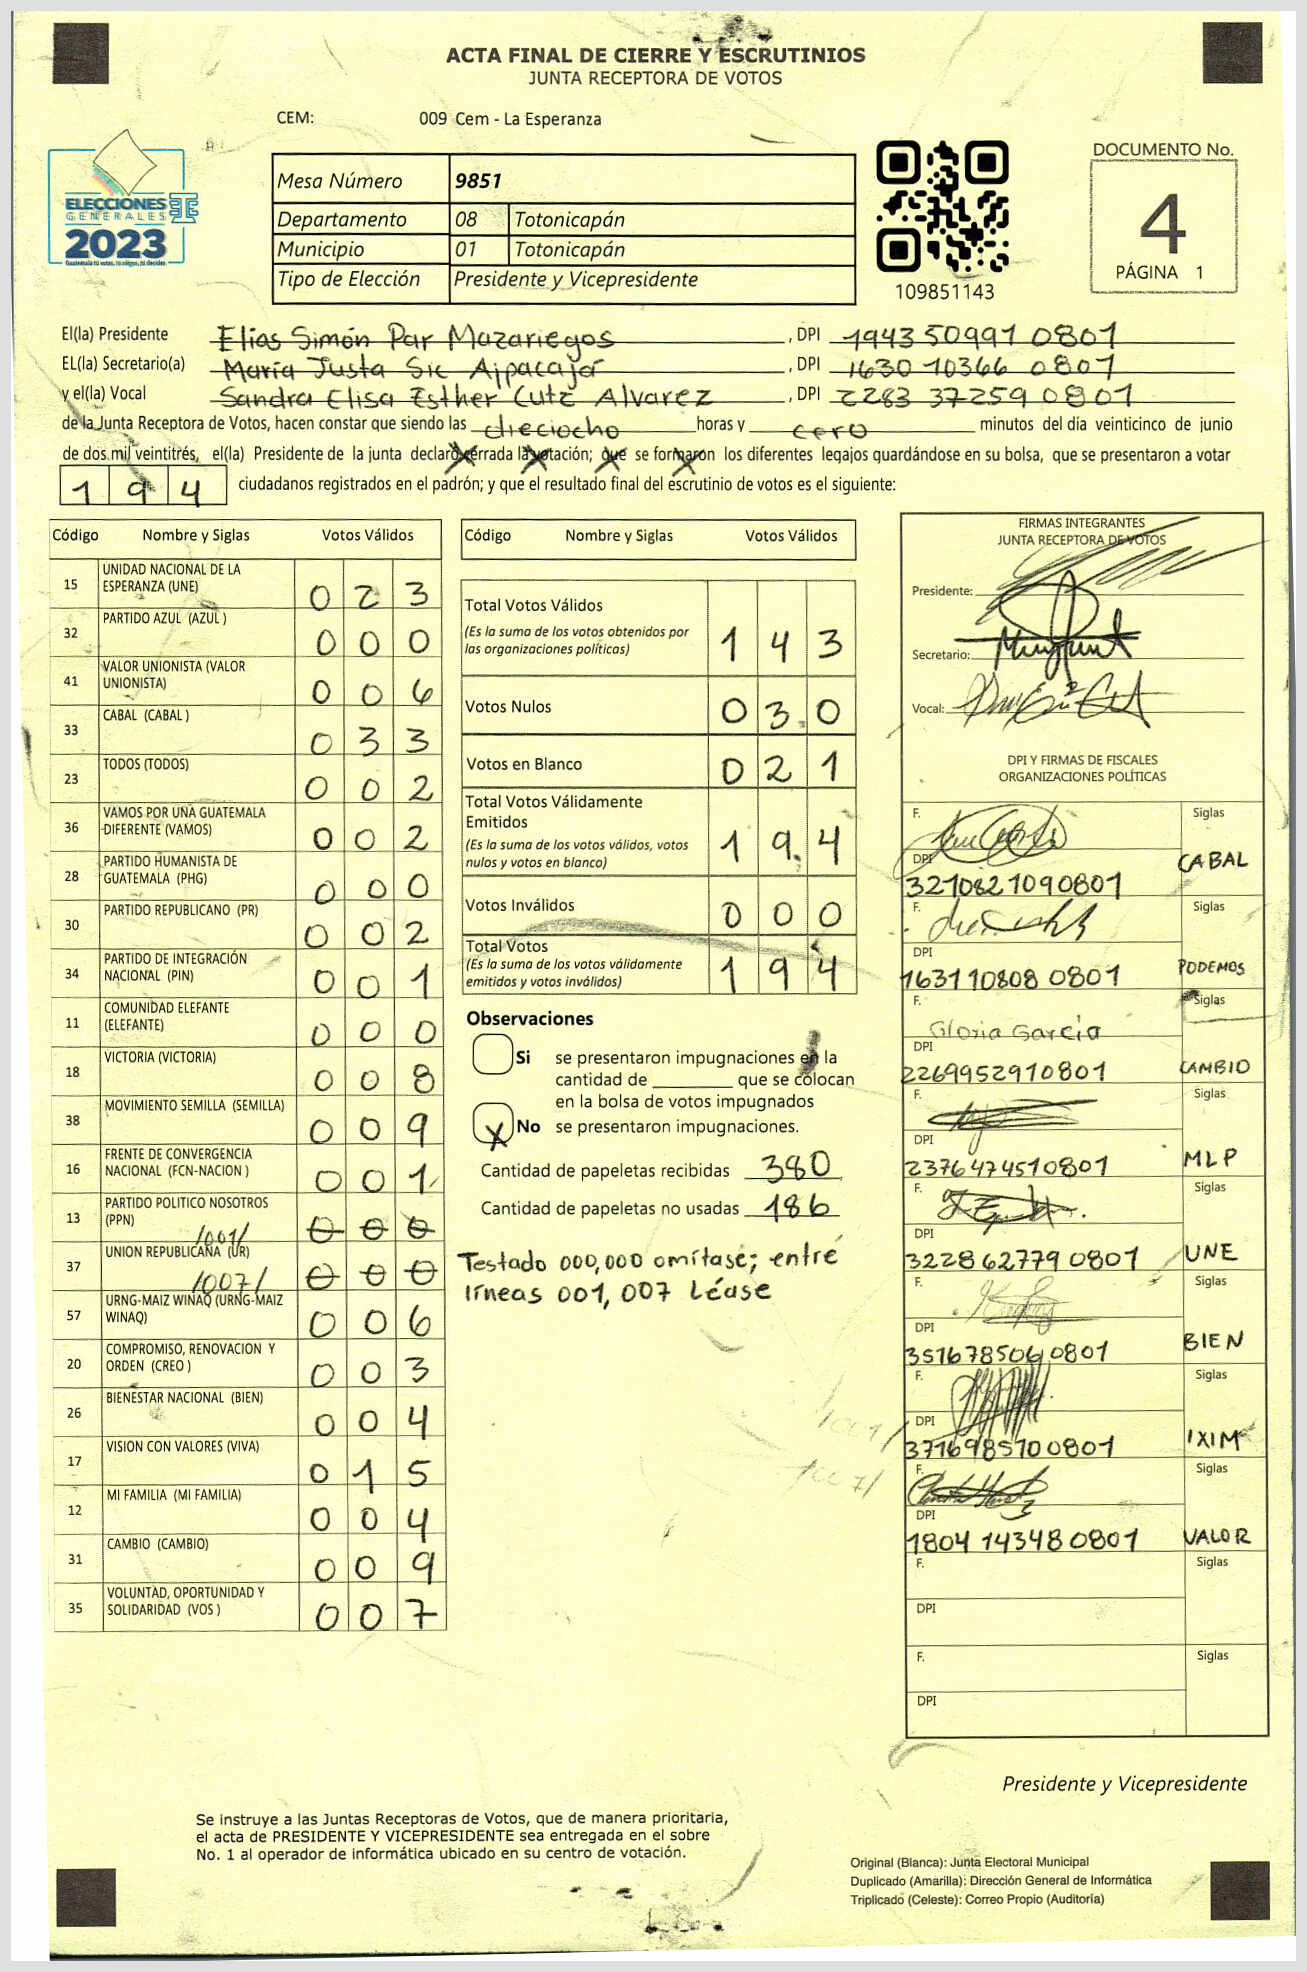 ACTA FINAL DE CIERRE Y ESCRUTINIOS
JUNTA RECEPTORA DE VOTOS
CEM: 009 Cem - La Esperanza
ELECCIONES
GENERALES
2023
Guatemala tú votas, tú eliges, tú decides
Mesa Número 9851
Departamento 08 Totonicapán
Municipio 01 Totonicapán
Tipo de Elección Presidente y Vicepresidente
109851143
DOCUMENTO No.
4
PÁGINA 1
El(la) Presidente Elías Simón Par Mazariegos, DPI 1943 50991 0801
EL(la) Secretario(a) María Justa Sic Ajpacajá, DPI 1630 10366 0801
y el(la) Vocal Sandra Elisa Esther Cutz Alvarez, DPI 2283 37259 0801
de la Junta Receptora de Votos, hacen constar que siendo las dieciocho horas y cero minutos del día veinticinco de junio
de dos mil veintitrés, el(la) Presidente de la junta declaró cerrada la votación; que se formaron los diferentes legajos guardándose en su bolsa, que se presentaron a votar
194 ciudadanos registrados en el padrón; y que el resultado final del escrutinio de votos es el siguiente:
Código Nombre y Siglas Votos Válidos
15 UNIDAD NACIONAL DE LA ESPERANZA (UNE) 0 2 3
32 PARTIDO AZUL (AZUL ) 0 0 0
41 VALOR UNIONISTA (VALOR UNIONISTA) 0 0 6
33 CABAL (CABAL ) 0 3 3
23 TODOS (TODOS) 0 0 2
36 VAMOS POR UNA GUATEMALA DIFERENTE (VAMOS) 0 0 2
28 PARTIDO HUMANISTA DE GUATEMALA (PHG) 0 0 0
30 PARTIDO REPUBLICANO (PR) 0 0 2
34 PARTIDO DE INTEGRACIÓN NACIONAL (PIN) 0 0 1
11 COMUNIDAD ELEFANTE (ELEFANTE) 0 0 0
18 VICTORIA (VICTORIA) 0 0 8
38 MOVIMIENTO SEMILLA (SEMILLA) 0 0 9
16 FRENTE DE CONVERGENCIA NACIONAL (FCN-NACION ) 0 0 1
13 PARTIDO POLITICO NOSOTROS (PPN) /001/ 0 0 0
37 UNION REPUBLICANA (UR) /007/ 0 0 0
57 URNG-MAIZ WINAQ (URNG-MAIZ WINAQ) 0 0 6
20 COMPROMISO, RENOVACION Y ORDEN (CREO ) 0 0 3
26 BIENESTAR NACIONAL (BIEN) 0 0 4
17 VISION CON VALORES (VIVA) 0 1 5
12 MI FAMILIA (MI FAMILIA) 0 0 4
31 CAMBIO (CAMBIO) 0 0 9
35 VOLUNTAD, OPORTUNIDAD Y SOLIDARIDAD (VOS ) 0 0 7
Código Nombre y Siglas Votos Válidos
Total Votos Válidos 1 4 3
(Es la suma de los votos obtenidos por
las organizaciones políticas)
Votos Nulos 0 3 0
Votos en Blanco 0 2 1
Total Votos Válidamente
Emitidos 1 9 4
(Es la suma de los votos válidos, votos
nulos y votos en blanco)
Votos Inválidos 0 0 0
Total Votos 1 9 4
(Es la suma de los votos válidamente
emitidos y votos inválidos)
Observaciones
Si se presentaron impugnaciones en la
cantidad de ________ que se colocan
en la bolsa de votos impugnados
X No se presentaron impugnaciones.
Cantidad de papeletas recibidas 380
Cantidad de papeletas no usadas 186
Testado 000,000 omítase; entre
líneas 001, 007 Léase
/001/
/007/
FIRMAS INTEGRANTES
JUNTA RECEPTORA DE VOTOS
Presidente:
Secretario:
Vocal:
DPI Y FIRMAS DE FISCALES
ORGANIZACIONES POLÍTICAS
F. Siglas
DPI 3210821090801 CABAL
F. Siglas
DPI 1631 10808 0801 PODEMOS
F. Gloria García Siglas
DPI 2269952910801 CAMBIO
F. Siglas
DPI 2376474510801 MLP
F. Siglas
DPI 3228 62779 0801 UNE
F. Siglas
DPI 3516785060801 BIEN
F. Siglas
DPI 3716985700801 IXIM
F. Siglas
DPI 1804 14348 0801 VALOR
F. Siglas
DPI
F. Siglas
DPI
Presidente y Vicepresidente
Se instruye a las Juntas Receptoras de Votos, que de manera prioritaria,
el acta de PRESIDENTE Y VICEPRESIDENTE sea entregada en el sobre
No. 1 al operador de informática ubicado en su centro de votación.
Original (Blanca): Junta Electoral Municipal
Duplicado (Amarilla): Dirección General de Informática
Triplicado (Celeste): Correo Propio (Auditoría)